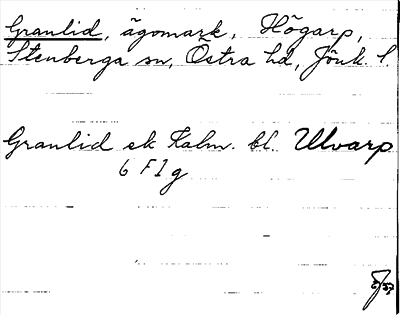 Granlid, ägomark, Högarp,
Stenberga sn, Östra hd, Jönk. l.
Granlid ek Kalm. bl. Ulvarp
6 F 1 g